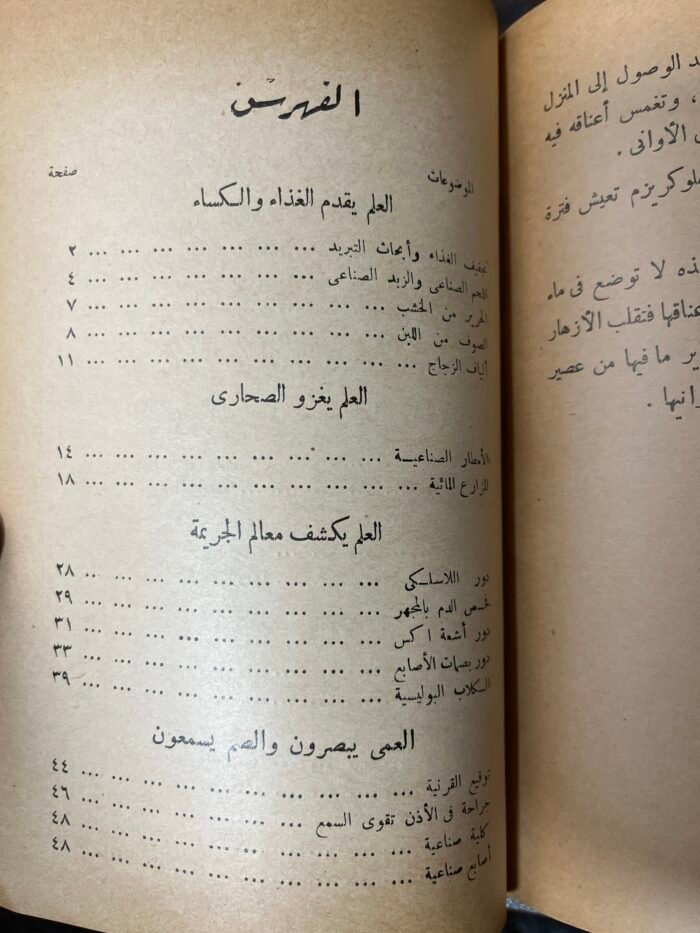 الفهرس
الموضوعات صفحة
العلم يقدم الغذاء والكساء
تجفيف الغذاء وأبحاث التبريد ... ... ... ... ... ... ... ٢
اللحم الصناعى والزبد الصناعى ... ... ... ... ... ... ... ٤
الحرير من الخشب ... ... ... ... ... ... ... ... ... ٧
الصوف من اللبن ... ... ... ... ... ... ... ... ... ٨
ألياف الزجاج ... ... ... ... ... ... ... ... ... ١١
العلم يغزو الصحارى
الأمطار الصناعية ... ... ... ... ... ... ... ... ... ١٤
المزارع المائية ... ... ... ... ... ... ... ... ... ١٨
العلم يكشف معالم الجريمة
دور اللاسلكى ... ... ... ... ... ... ... ... ... ٢٨
فحص الدم بالمجهر ... ... ... ... ... ... ... ... ... ٢٩
دور أشعة اكس ... ... ... ... ... ... ... ... ... ٣١
دور بصمات الأصابع ... ... ... ... ... ... ... ... ... ٣٣
الكلاب البوليسية ... ... ... ... ... ... ... ... ... ٣٩
العمى يبصرون والصم يسمعون
توقيع القرنية ... ... ... ... ... ... ... ... ... ٤٤
جراحة فى الأذن تقوى السمع ... ... ... ... ... ... ... ٤٦
كلية صناعية ... ... ... ... ... ... ... ... ... ٤٨
أصابع صناعية ... ... ... ... ... ... ... ... ... ٤٨
الوصول إلى المنزل
، وتغمس أعناقه فيه
الأوانى .
تعيش فترة
لا توضع فى ماء
فتقلب الأزهار
ما فيها من عصير